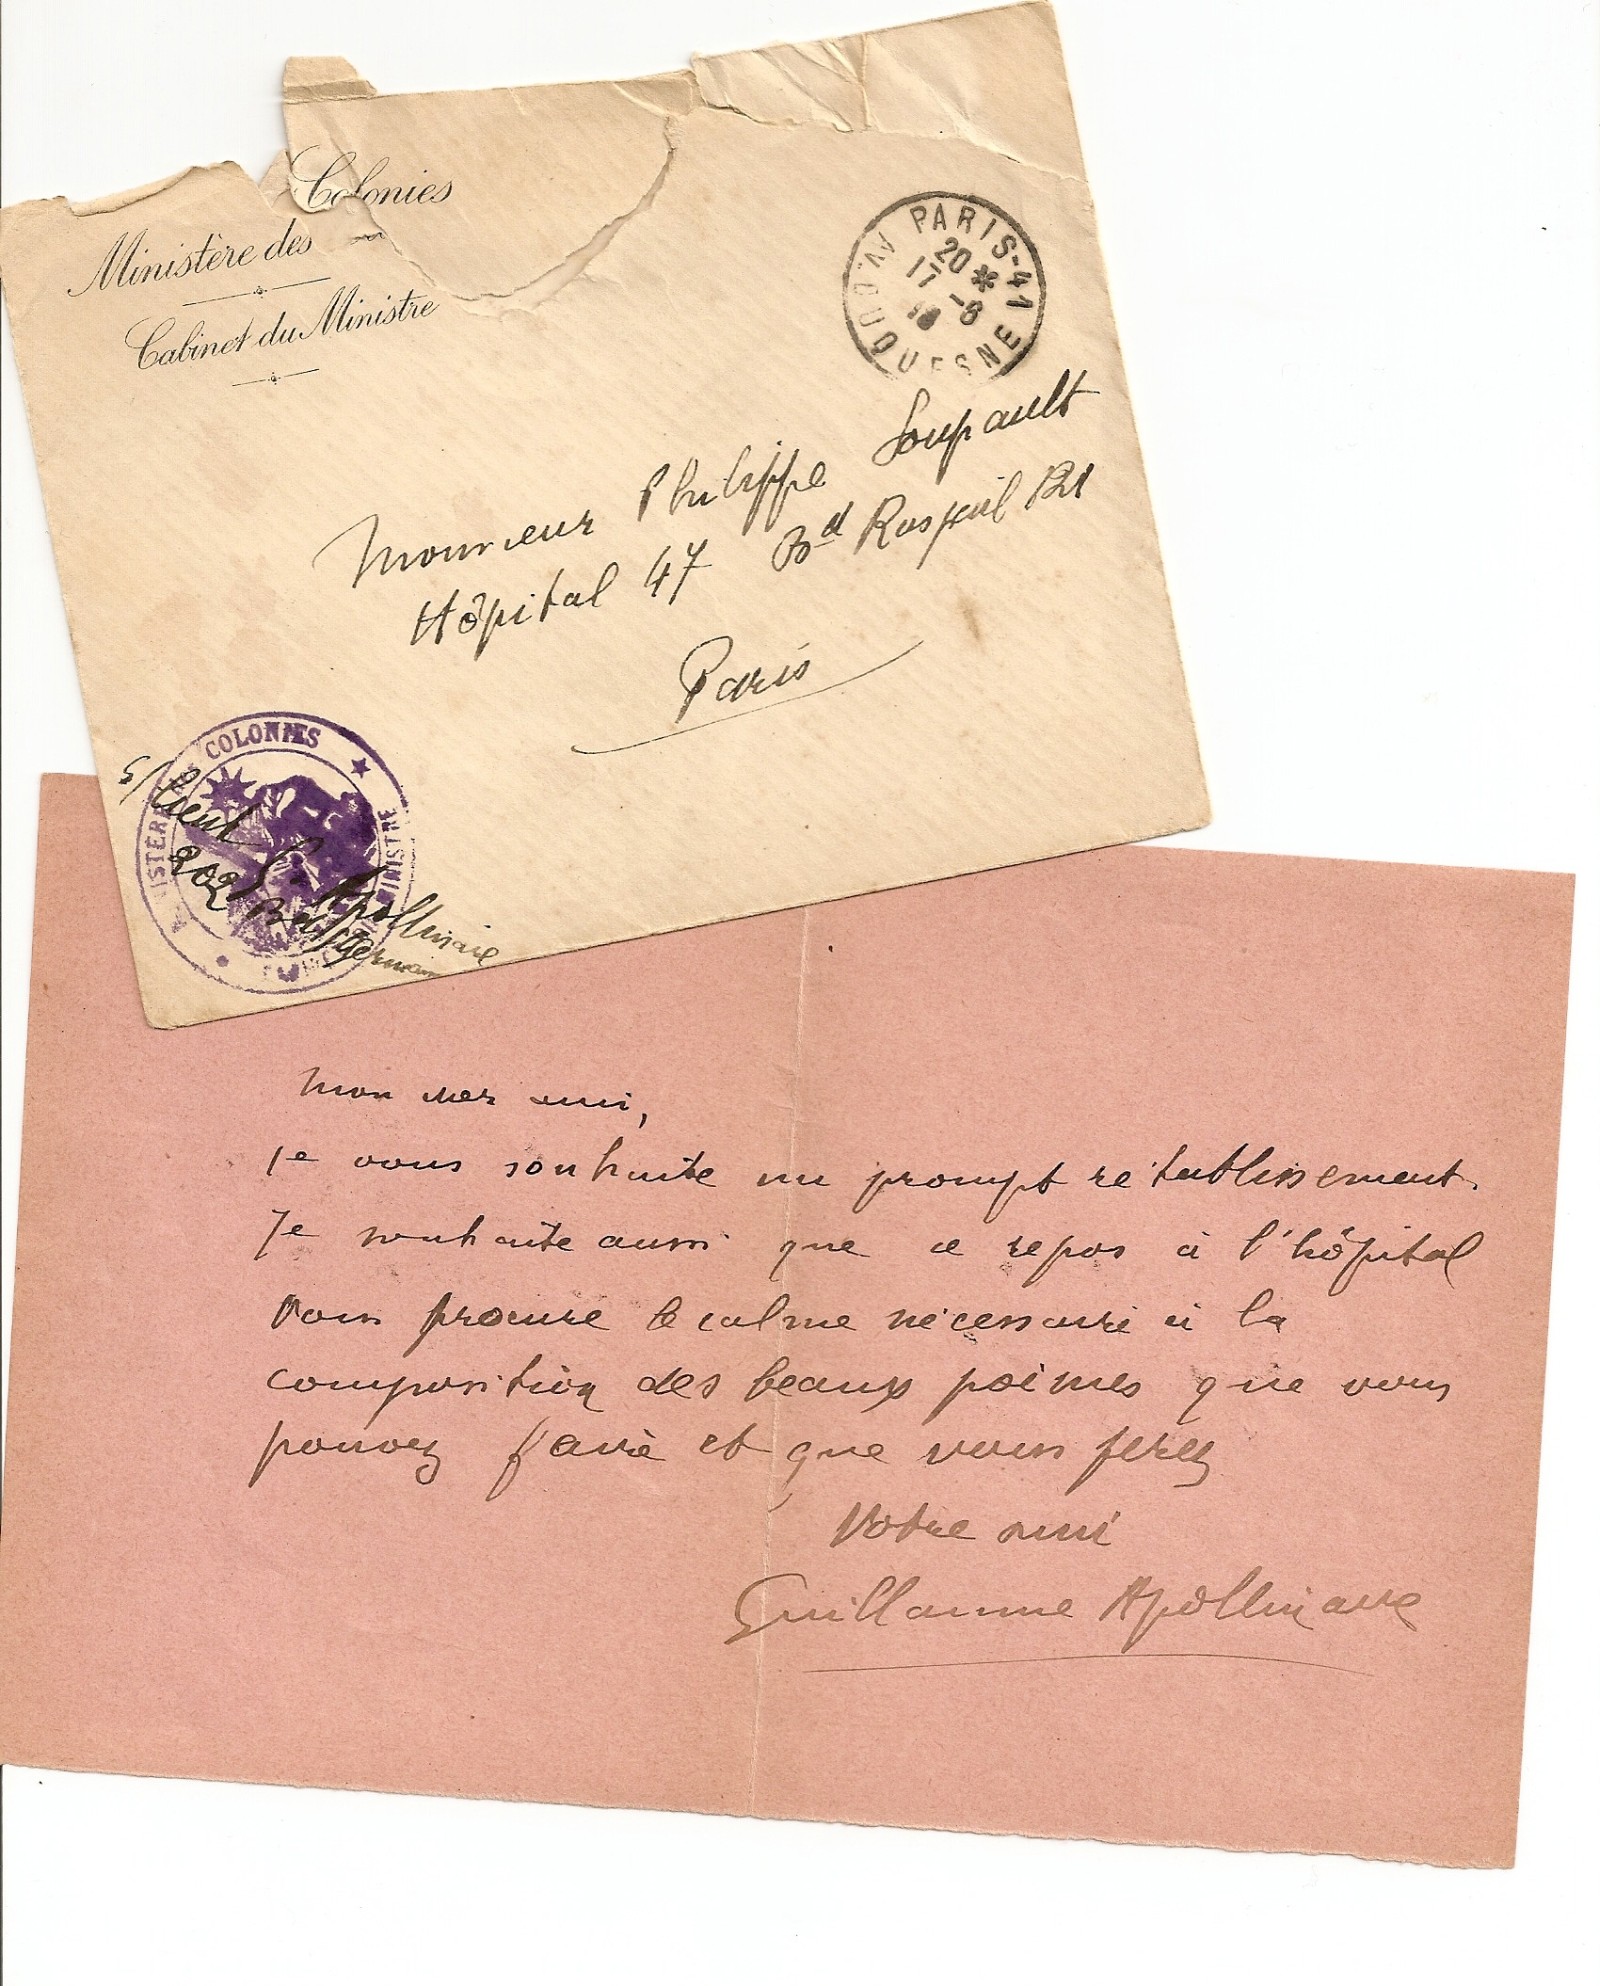 Ministère des Colonies
Cabinet du Ministre
PARIS-41 * AV. DUQUESNE
20 *
17 -6
18
Monsieur Philippe Soupault
Hôpital 47 Bd Raspail 121
Paris
MINISTÈRE DES COLONIES ★ MINISTRE
s/Lieut G. Apollinaire
202 Bd St Germain
Mon cher ami,
je vous souhaite un prompt rétablissement.
Je souhaite aussi que ce repos à l'hôpital
vous procure le calme nécessaire à la
composition des beaux poèmes que vous
pouvez faire et que vous ferez
Votre ami
Guillaume Apollinaire